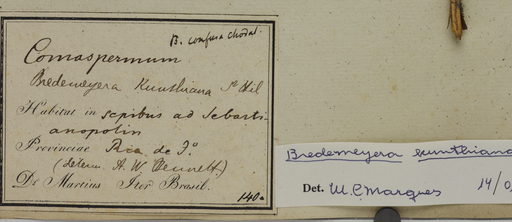 B. confusa Chodat.
Comaspermum
Bredemeyera Kunthiana St Hil
Habitat in sepibus ad Sebasti-
anopolin
Provinciae Rio de J.º
(determ. A. W. Bennett)
Dr Martius Iter Brasil.
140.
Bredemeyera kunthiana
Det. M.C. Marques 14/0